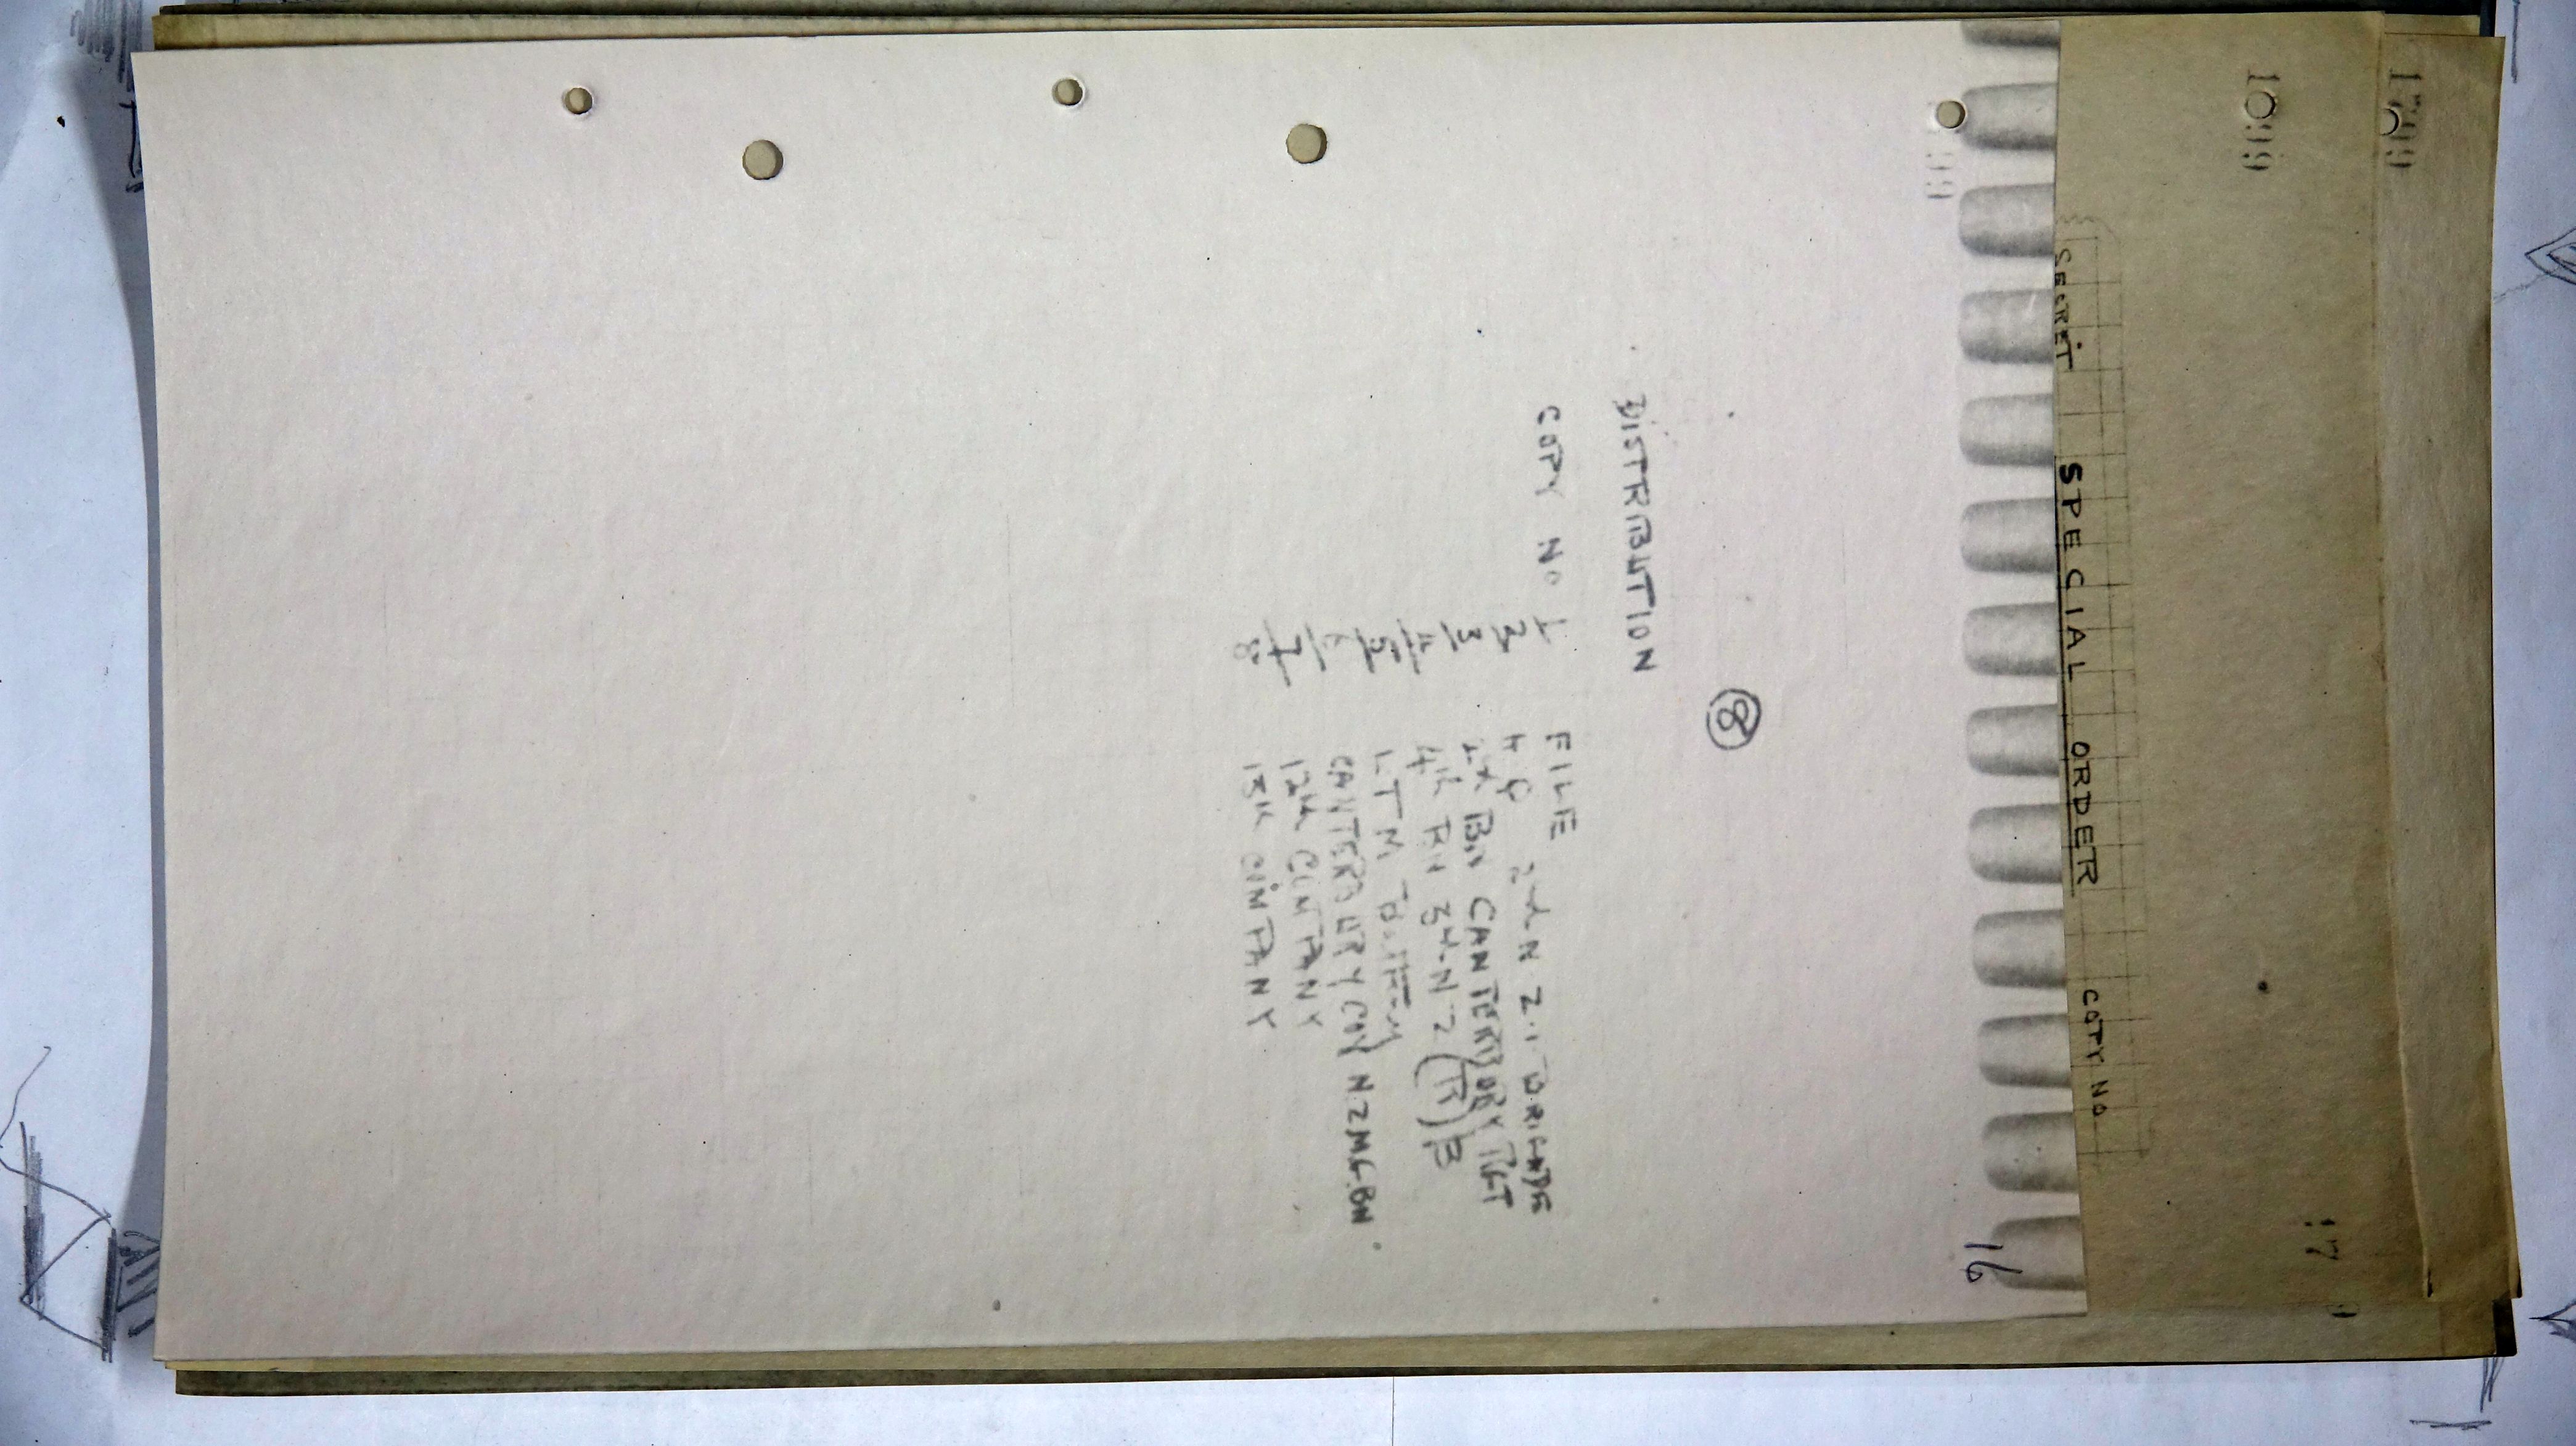 SECRET SPECIAL ORDER COPY NO
16
⑧
DISTRIBUTION
COPY NO 1 FILE
2 HQ 2nd N.Z. BRIGADE
3 BN CANTERBURY RGT
4 4th BN 3rd N Z (R) B
5 L T M
6 CANTERBURY COY NZMGBN
7 12th COMPANY
8 13th COMPANY
1099
1799
17